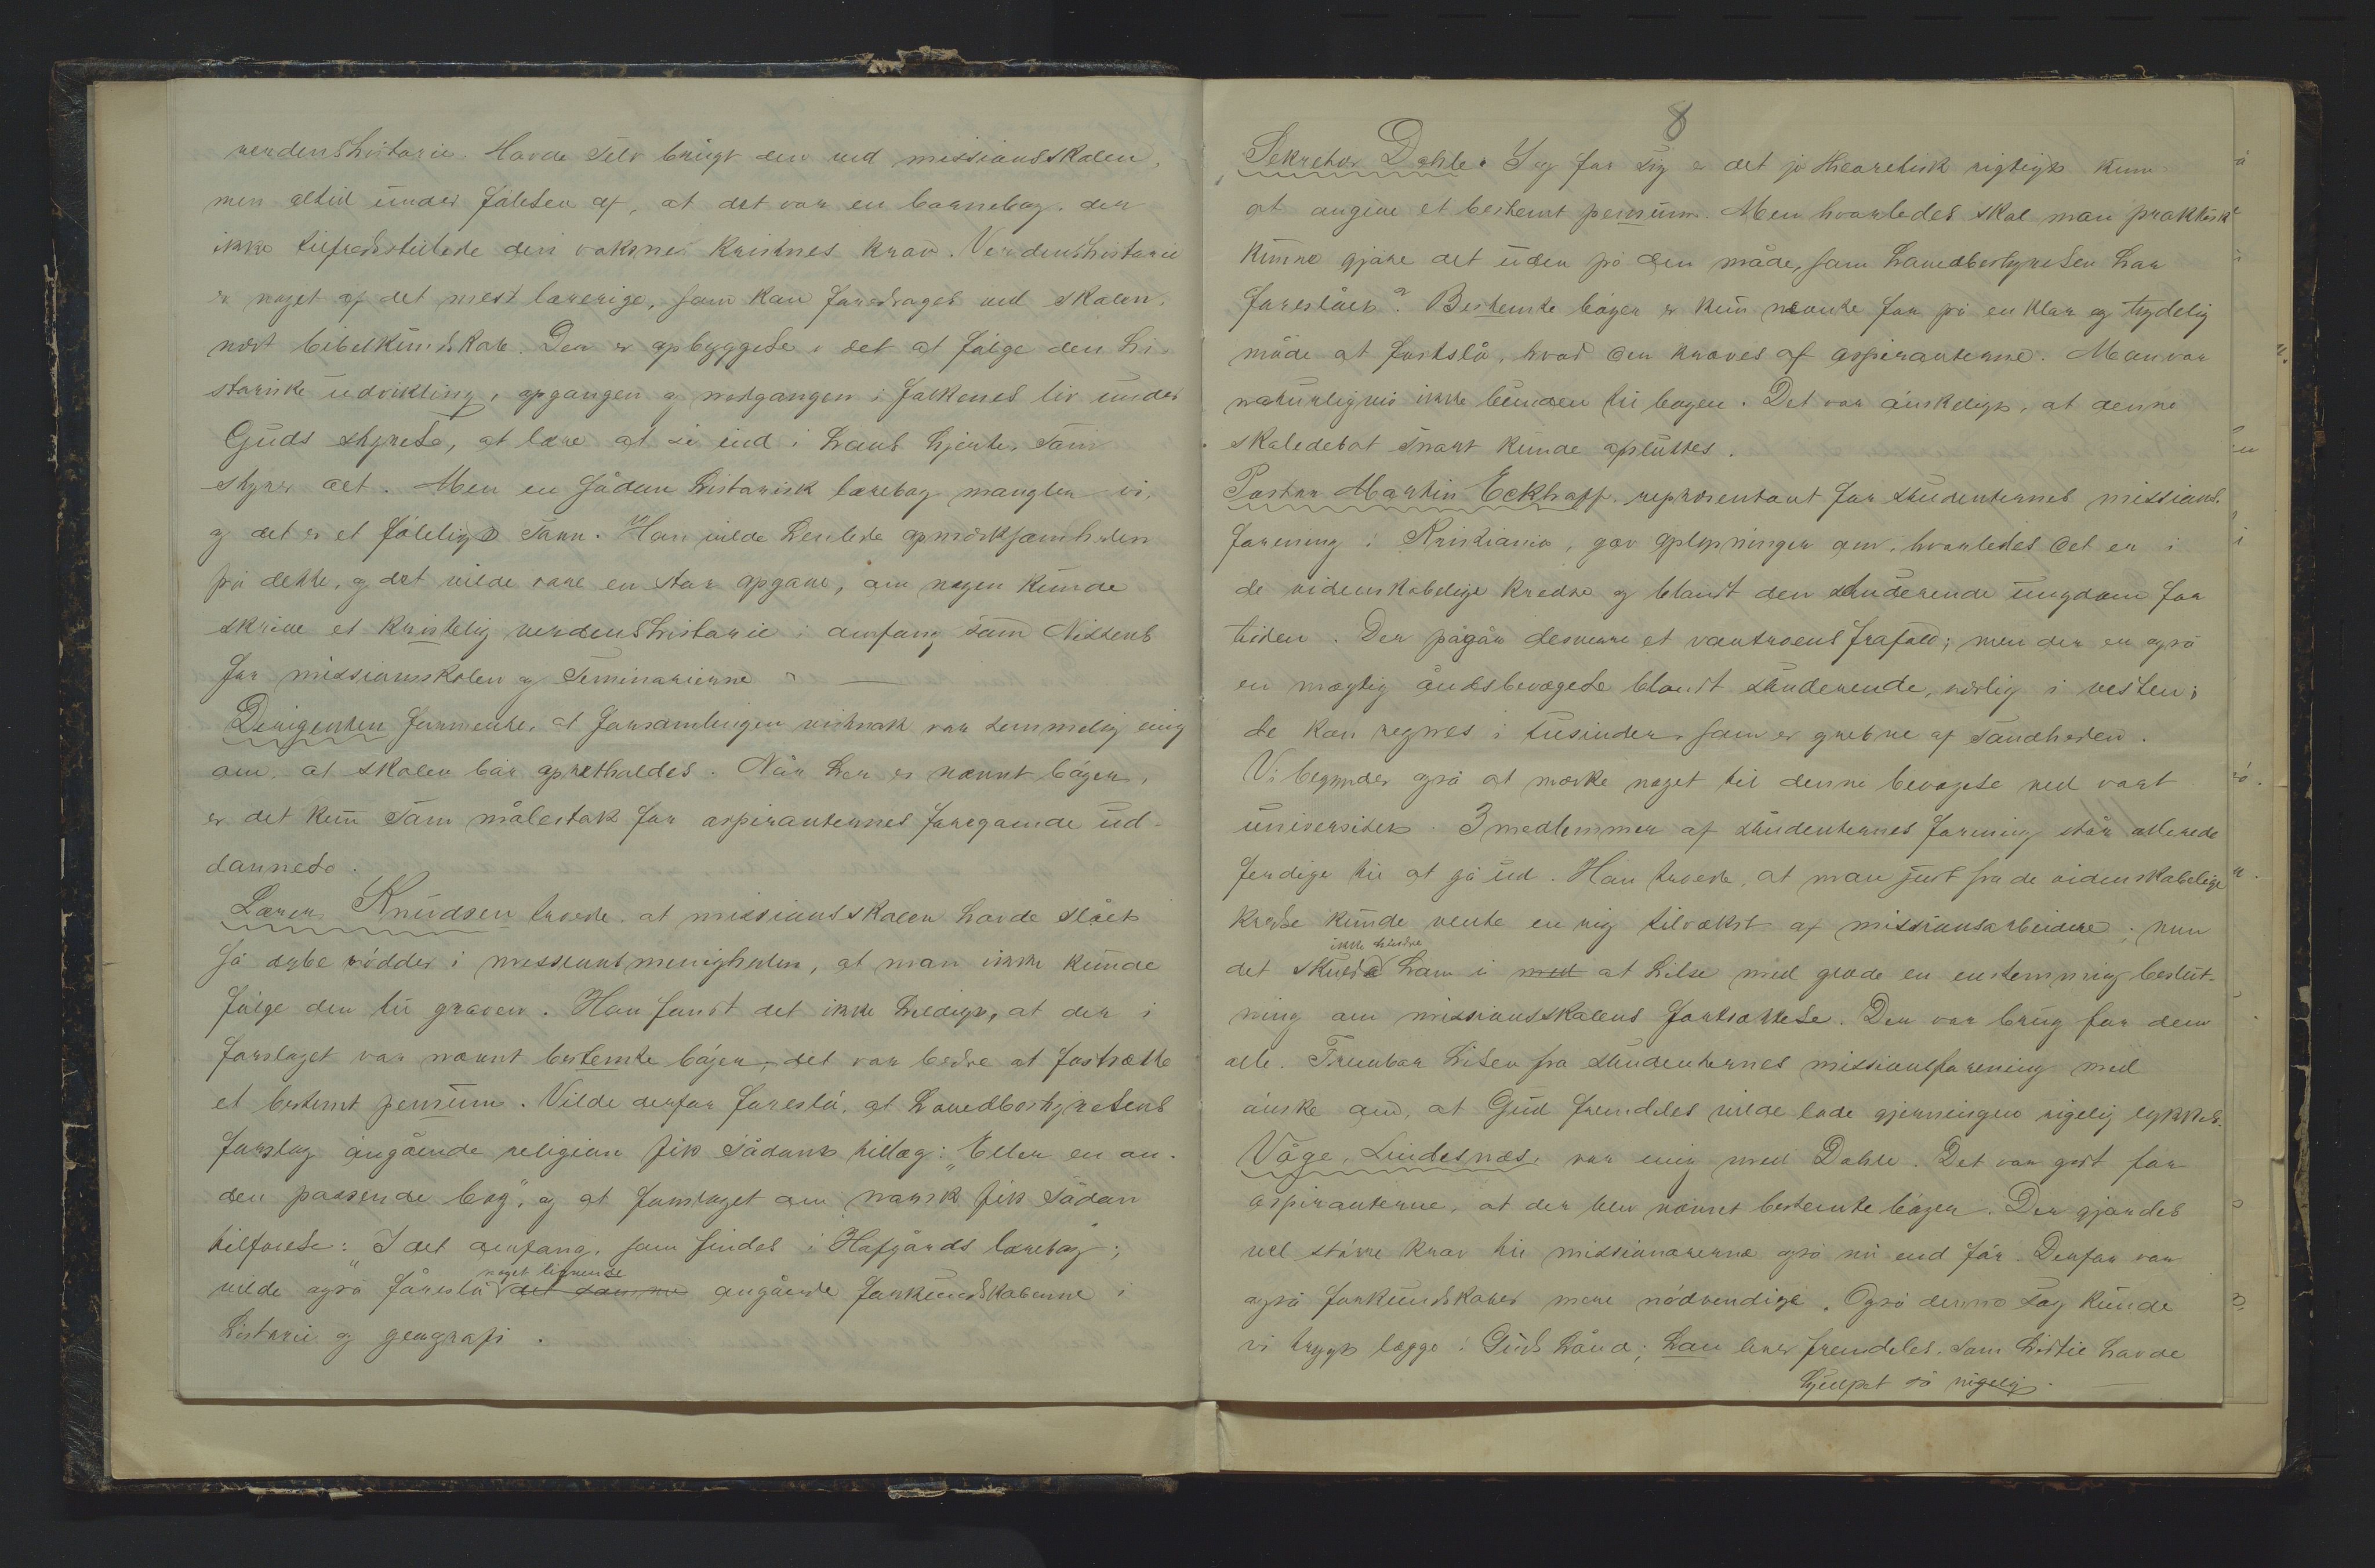 verdenshistorie. Havde selv brugt den ved missionsskolen,
men altid under følelsen af, at det var en barnebog, der
ikke tilfredsstillede den voksne kristnes krav. Verdenshistorie
er noget af det mest lærerige, som kan foredrages ved skolen,
næst bibelkundskab. Der er opbyggelse i det at følge den hi-
storiske udvikling, opgangen og nedgangen i folkenes liv under
Guds styrelse, at lære at se ind i hans hjerte, som
styrer det. Men en sådan historisk lærebog mangler vi,
og det er et føleligt savn. Han vilde henlede opmærksomheden
på dette, og det vilde være en stor opgave, om nogen kunde
skrive et kristelig verdenshistorie i omfang som Nissens
for missionsskolen og seminarierne. —
Dirigenten formente, at forsamlingen vistnok var temmelig enig
om, at skolen bør opretholdes. Når her er nævnt bøger,
er det kun som målestok for aspiranternes foregaaende ud-
dannelse.
Lærer Knudsen troede, at missionsskolen havde slået
så dybe rødder i missionsmenigheden, at man ikke kunde
følge den til graven. Han fandt det ikke heldigt, at der i
forslaget var nævnt bestemte bøger, det var bedre at fastsætte
et bestemt pensum. Vilde derfor foreslå, at hovedbestyrelsens
forslag angående religion fik sådant tillæg: "Eller en an-
den passende bog", og at forslaget om norsk fik sådan
tilføielse: "I det omfang, som findes i Hofgårds lærebog";
vilde også foreslå noget lignende det samme angående forkundskaberne i
historie og geografi.
8
Sekretær Dahle. I og for sig er det jo theoretisk rigtigt kun
at angive et bestemt pensum. Men hvorledes skal man praktisk
kunne gjøre det uden på den måde, som hovedbestyrelsen har
foreslået? Bestemte bøger er kun nævnte for på en klar og tydelig
måde at fastslå, hvad der kræves af aspiranterne. Man var
naturligvis ikke bunden til bogen. Det var ønskeligt, at denne
skoledebat snart kunde afsluttes.
Pastor Martin Eckhoff, repræsentant for studenternes missions-
forening i Kristiania, gav oplysninger om, hvorledes det er i
de videnskabelige kredse og blandt den studerende ungdom for
tiden. Der pågår desværre et vantroens frafald; men der er også
en mægtig åndsbevægelse blandt studerende, særlig i vesten;
de kan regnes i tusinder, som er grebne af sandheden.
Vi begynder også at mærke noget til denne bevægelse ved vort
universitet. 3 medlemmer af studenternes forening står allerede
færdige til at gå ud. Han troede, at man just fra de videnskabelige
kredse kunde vente en rig tilvækst af missionsarbeidere; men
det skulde ikke hindre ham i med at hilse med glæde en enstemmig beslut-
ning om missionsskolens fortsættelse. Der var brug for dem
alle. Frembar hilsen fra studenternes missionsforening med
ønske om, at Gud fremdeles vilde lade gjerningen rigelig lykkes.
Våge, Lindesnæs, var enig med Dahle. Det var godt for
aspiranterne, at der blev nævnt bestemte bøger. Der gjordes
vel større krav til missionærerne også nu end før. Derfor var
også forkundskaber mere nødvendige. Også denne sag kunde
vi trygt lægge i Guds hånd; han lever fremdeles, som hidtil havde
hjulpet så rigelig. —